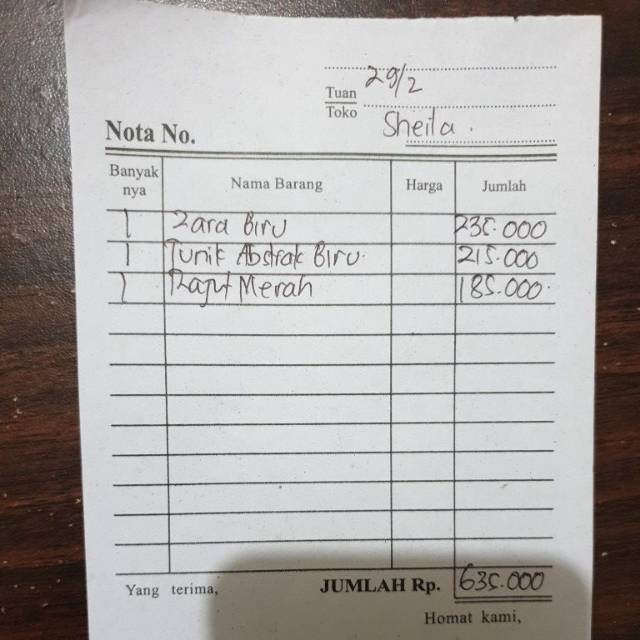 29/2
Tuan
Toko
Sheila.
Nota No.
Banyak nya Nama Barang Harga Jumlah
1 Zara Biru 235.000
1 Tunik Abstrak Biru 215.000
1 Rajut Merah 185.000
Yang terima, JUMLAH Rp. 635.000
Homat kami,